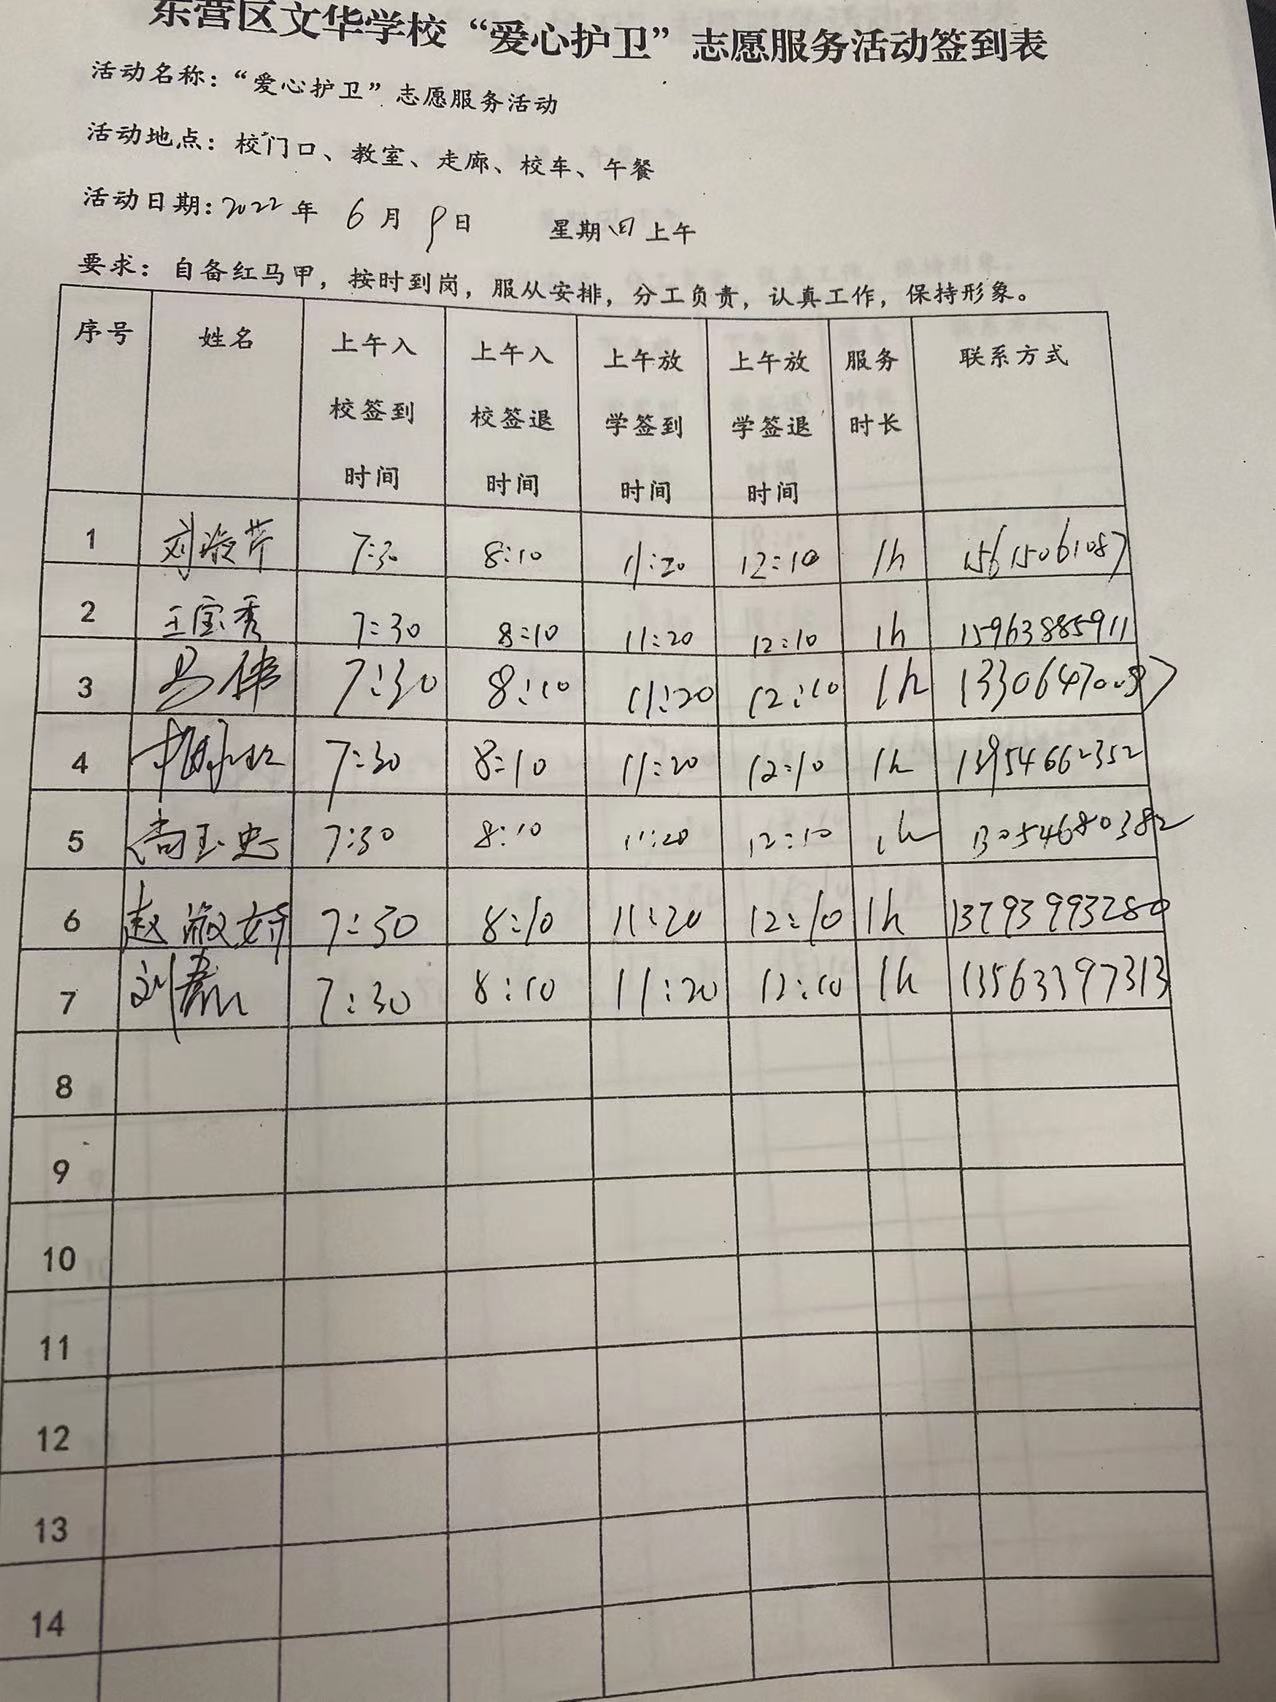 东营区文华学校“爱心护卫”志愿服务活动签到表
活动名称：“爱心护卫”志愿服务活动
活动地点：校门口、教室、走廊、校车、午餐
活动日期：2022年 6月 9日 星期四上午
要求：自备红马甲，按时到岗，服从安排，分工负责，认真工作，保持形象。
序号 姓名 上午入校签到时间 上午入校签退时间 上午放学签到时间 上午放学签退时间 服务时长 联系方式
1 刘 7:30 8:10 11:20 12:10 1h 15615061087
2 王宝秀 7:30 8:10 11:20 12:10 1h 15963885911
3 7:30 8:10 11:20 12:10 1h
4 7:30 8:10 11:20 12:10 1h 13954662352
5 尚玉忠 7:30 8:10 11:20 12:10 1h 13054680382
6 赵淑娇 7:30 8:10 11:20 12:10 1h 13793993280
7 刘 7:30 8:10 11:20 12:10 1h 13563397313
8
9
10
11
12
13
14